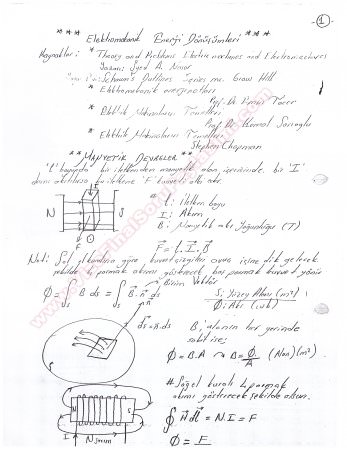 -1-
*** Elektromekanik Enerji Dönüşümleri ***
Kaynaklar: * Theory and Problems Electric machines and Electromechanics
Yazarı: Syed A. Nasar
Schaum's Outlines Series mc. Graw Hill
* Elektromekanik enerji notları
Prof. Dr.
* Elektrik Makinaları Temelleri
Prof. Dr. Kemal Sarıoğlu
* Elektrik Makinaları Temelleri
Stephen Chapman
** MANYETİK DEVRELER **
"l" boyunda bir iletkenden manyetik alan içerisinde bir "I"
akımı akıtılırsa bu iletkene F kuvveti etki eder
F
N S
l: İletken boyu
I: Akım
B: Manyetik akı Yoğunluğu (T)
F = l.I.B
Not: Sol el kuralına göre kuvvet çizgileri avuç içine dik gelecek
şekilde 4 parmak akımı gösterecek baş parmak kuvvet yönü
Birim Vektör
Φ = ∫ B ds = ∫ B.n ds
S: Yüzey Alanı (m²)
Φ: Akı (wb)
ds = n.ds
B, alanın her yerinde
sabit ise;
Φ = B.A → B = Φ/A
# Sağ el kuralı 4 parmak
akımı gösterecek şekilde
∮ H dl = N.I = F
N S
I N sarım
Φ = F